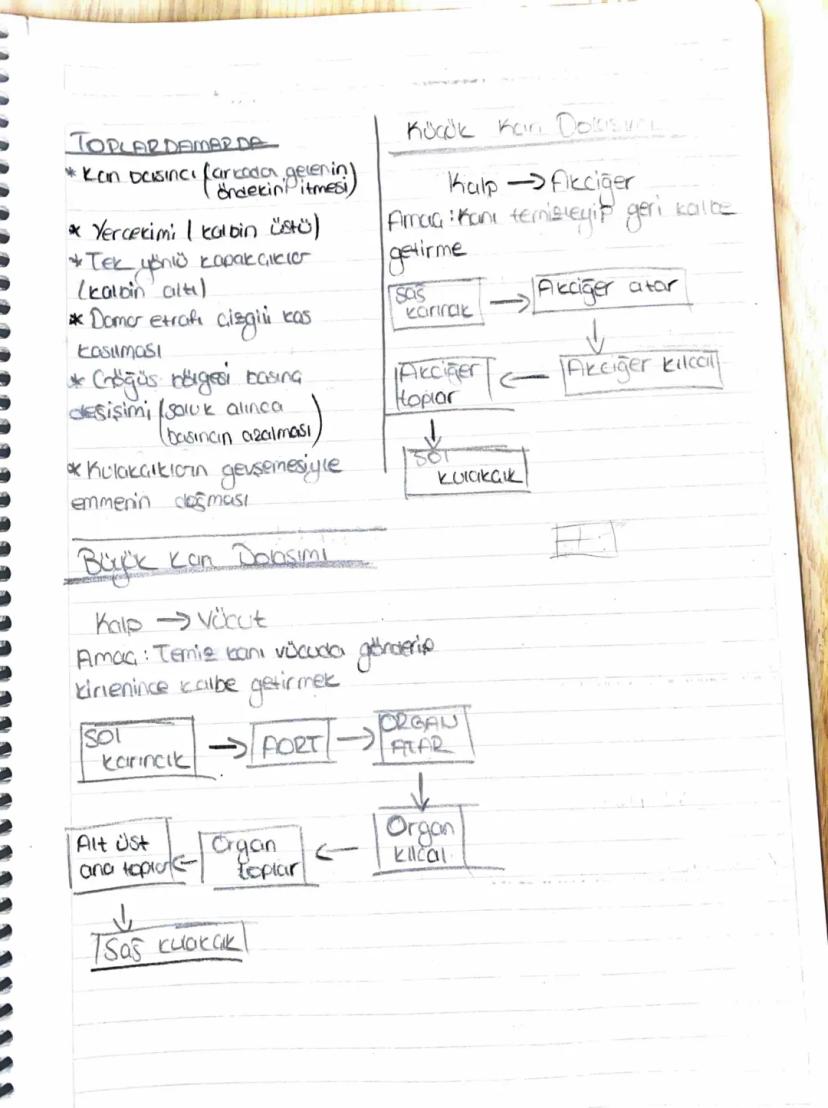 TOPLARDAMARDA
* Kan basıncı (arkadan gelenin
öndekini itmesi)
* Yerçekimi (kalbin üstü)
* Tek yönlü kapakçıklar
(kalbin altı)
* Damar etrafı çizgili kas
kasılması
* Göğüs bölgesi basınç
değişimi (soluk alınca
basıncın azalması)
* Kulakçıkların gevşemesiyle
emmenin doğması
Küçük Kan Dolaşımı
Kalp → Akciğer
Amaç: Kanı temizleyip geri kalbe
getirme
Sağ
karıncık → Akciğer atar
↓
Akciğer
toplar ← Akciğer kılcal
↓
Sol
kulakçık
Büyük Kan Dolaşımı
Kalp → Vücut
Amaç: Temiz kanı vücuda gönderip
kirlenince kalbe getirmek
Sol
karıncık → AORT → ORGAN
ATAR
↓
Alt üst
ana toplar ← Organ
toplar ← Organ
kılcal
↓
Sağ kulakçık